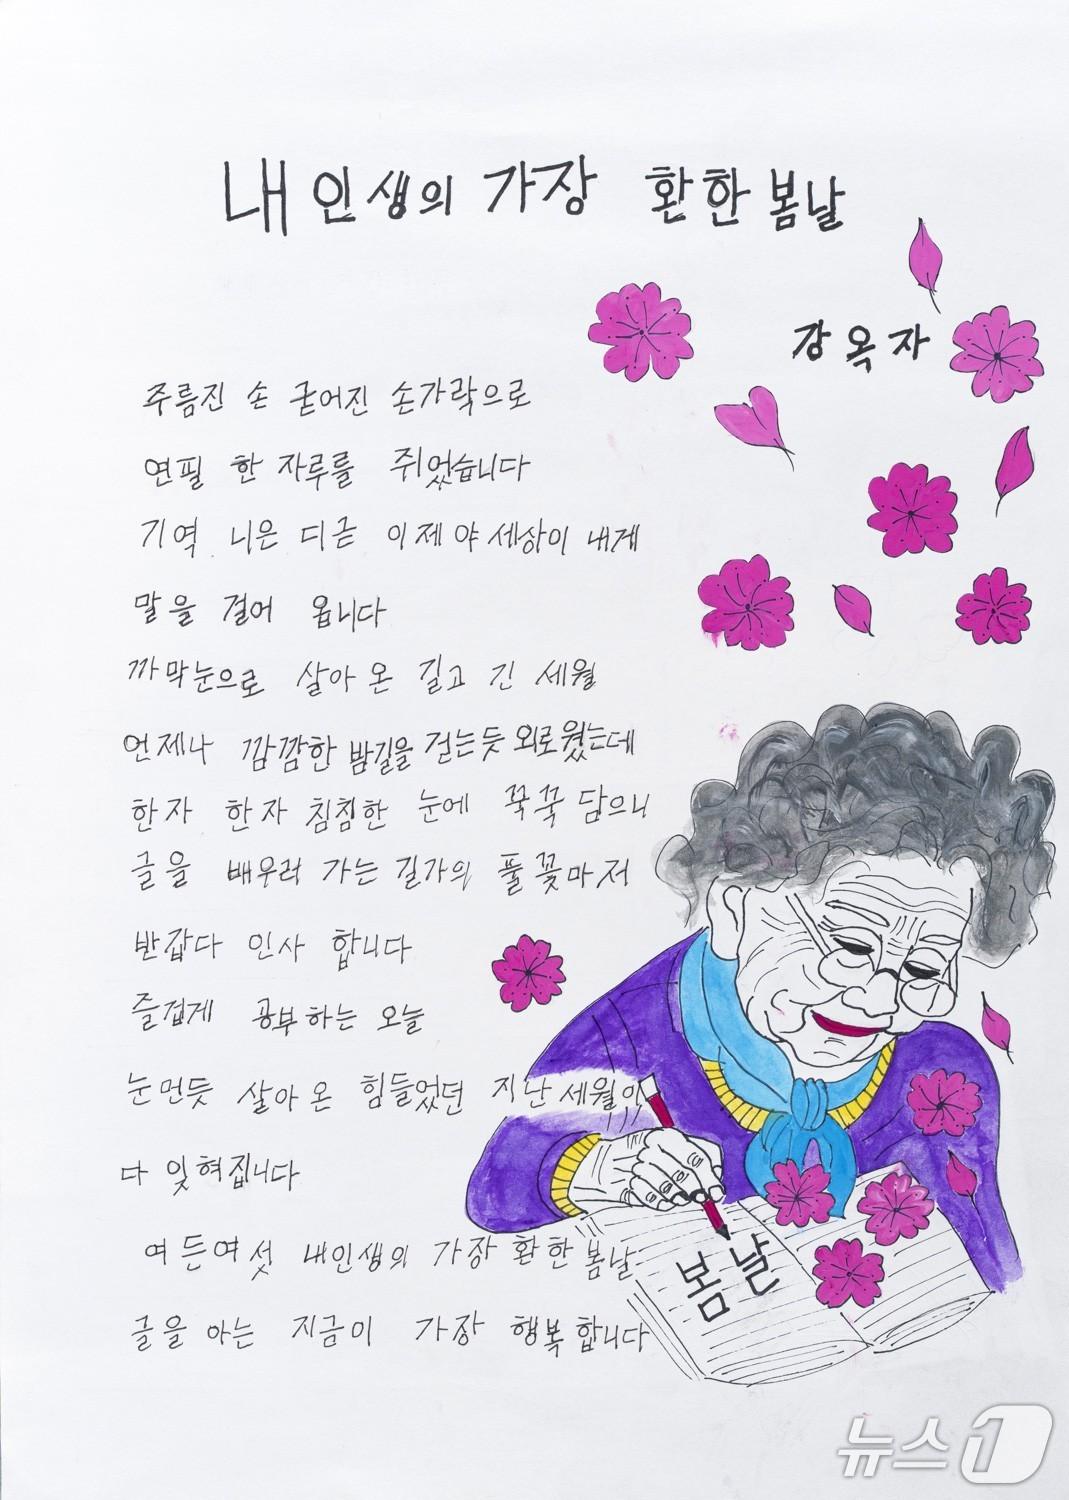 내 인생의 가장 환한 봄날
강옥자
주름진 손 굳어진 손가락으로
연필 한 자루를 쥐었습니다
기역 니은 디귿 이제 야 세상이 내게
말을 걸어 옵니다
까막눈으로 살아 온 길고 긴 세월
언제나 깜깜한 밤길을 걷는듯 외로웠는데
한자 한자 침침한 눈에 꾹꾹 담으니
글을 배우러 가는 길가의 풀꽃마저
반갑다 인사 합니다
즐겁게 공부하는 오늘
눈먼듯 살아 온 힘들었던 지난 세월이
다 잊혀집니다
여든여섯 내인생의 가장 환한 봄날
글을 아는 지금이 가장 행복합니다
봄날
뉴스1